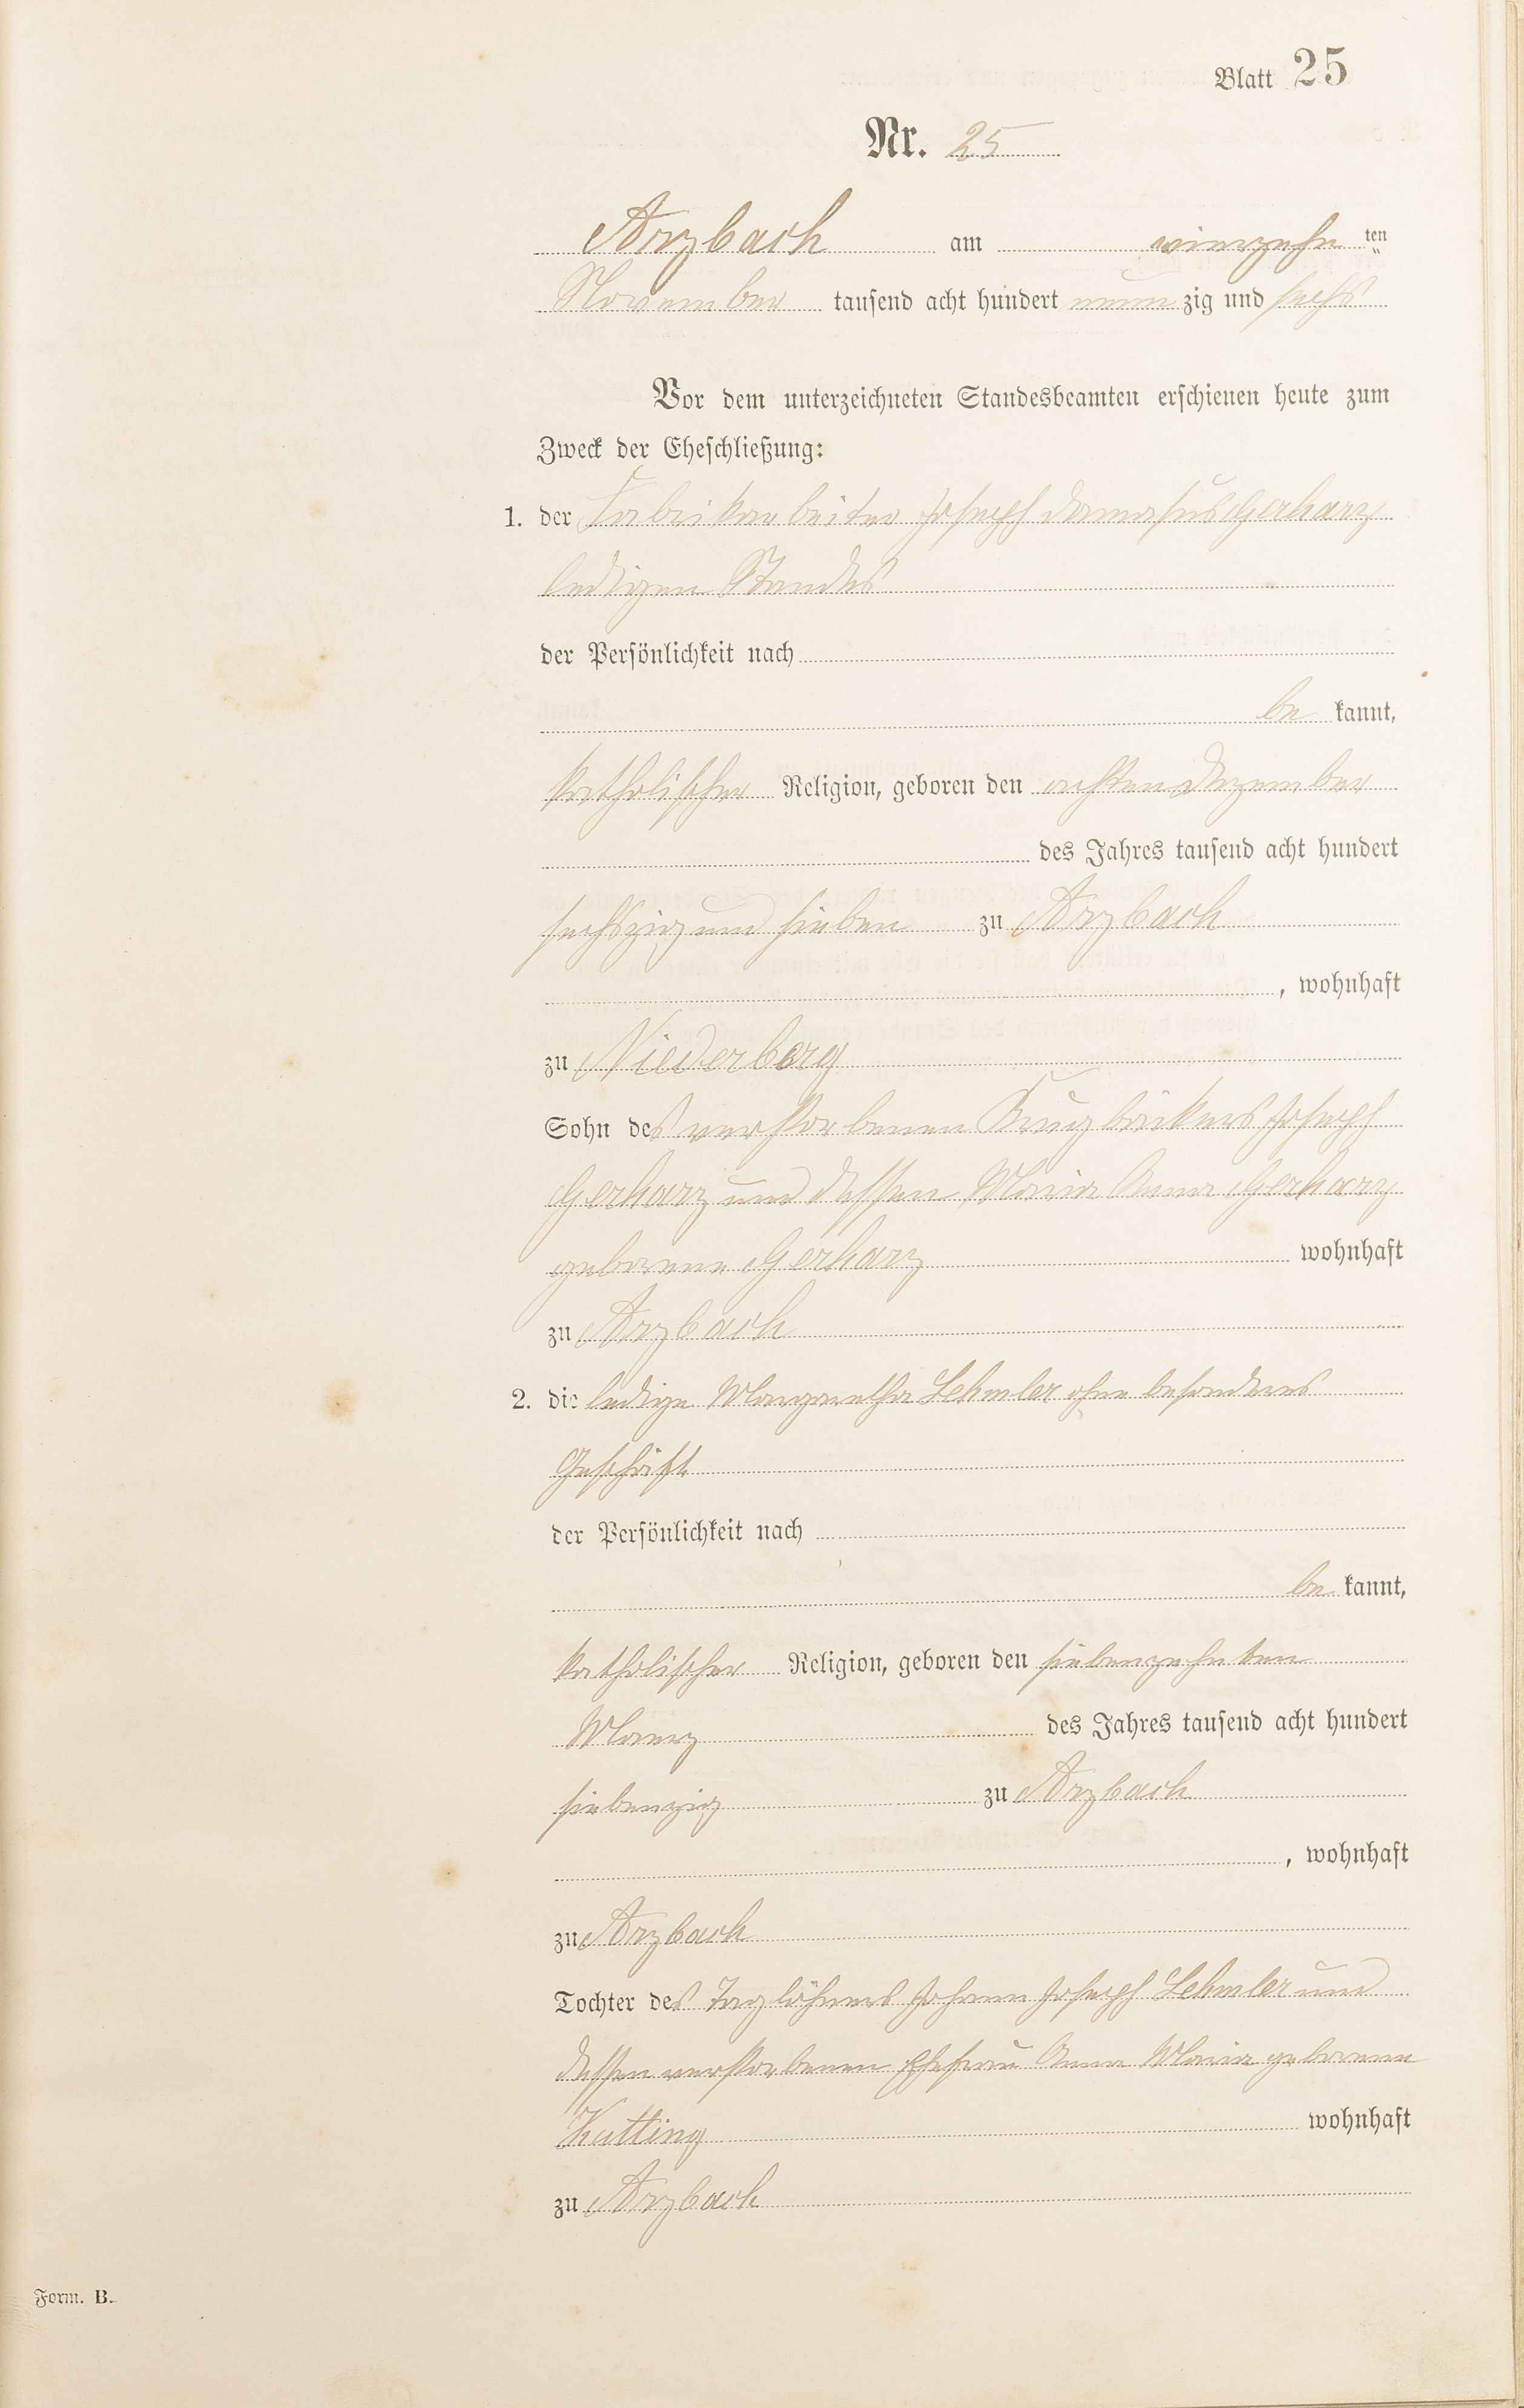 Blatt 25
Nr. 25
Arzbach am vierzehn ten
November tausend acht hundert neun zig und sechs
Vor dem unterzeichneten Standesbeamten erschienen heute zum
Zweck der Eheschließung:
1. der Fabrikarbeiter Joseph Damasus Gerharz
ledigen Standes
der Persönlichkeit nach
be kannt,
katholischer Religion, geboren den achten Dezember
des Jahres tausend acht hundert
sechszig und sieben zu Arzbach
, wohnhaft
zu Niederberg
Sohn des verstorbenen Krugbäckers Joseph
Gerharz und dessen Maria Anna Gerharz
geborene Gerharz wohnhaft
zu Arzbach
2. die ledige Margaretha Lehmler ohne besonderes
Geschäft
der Persönlichkeit nach
be kannt,
katholischer Religion, geboren den siebenzehnten
Maerz des Jahres tausend acht hundert
siebenzig zu Arzbach
, wohnhaft
zu Arzbach
Tochter des Taglöhners Johann Joseph Lehmler und
dessen verstorbenen Ehefrau Anna Maria geborene
Kutting wohnhaft
zu Arzbach
Form. B.